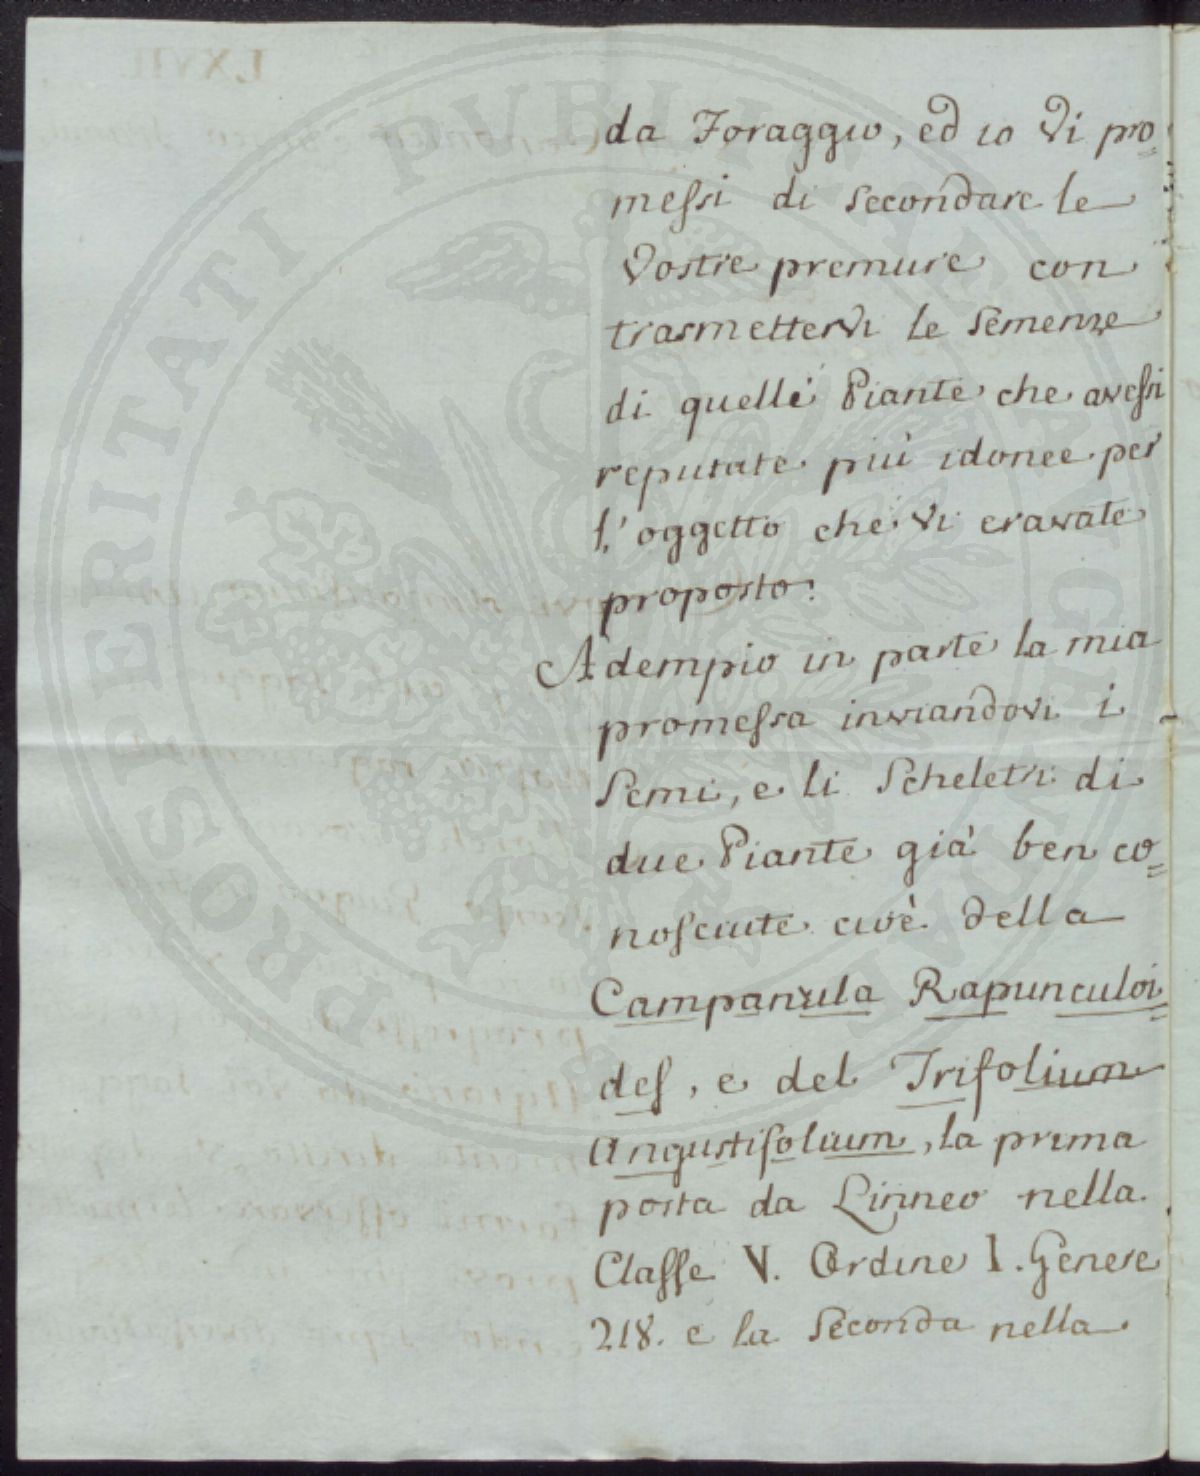 PROSPERITATI PUBLICAE AUGENDAE
da Foraggio, ed io Vi pro=
messi di secondare le
Vostre premure con
trasmettervi le Semenze
di quelle Piante che avessi
reputate più idonee per
l'oggetto che Vi eravate
proposto.
Adempio in parte la mia
promessa inviandovi i
Semi, e li Scheletri di
due Piante già ben co=
nosciute cioè della
Campanula Rapunculoi=
des, e del Trifolium
Angustifolium, la prima
posta da Linneo nella
Classe V. Ordine I. Genere
218. e la Seconda nella